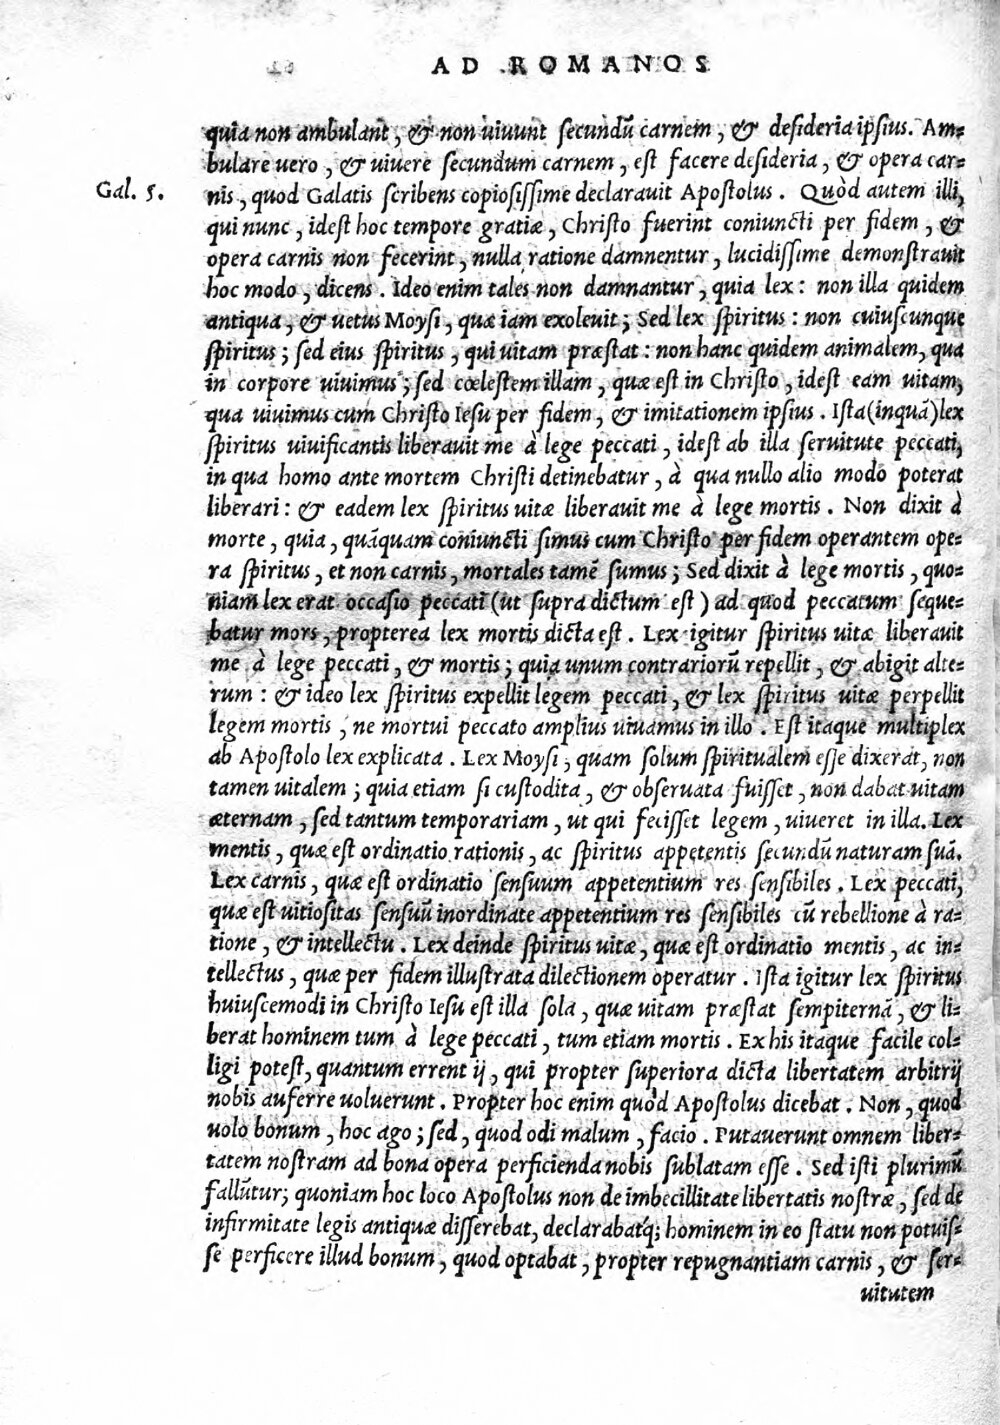 AD ROMANOS
quia non ambulant, & non uiuunt secundū carnem, & desideria ipsius. Am=
bulare uero, & uiuere secundum carnem, est facere desideria, & opera car=
Gal. 5.
nis, quod Galatis scribens copiosissime declarauit Apostolus. Quòd autem illi,
qui nunc, idest hoc tempore gratiæ, Christo fuerint coniuncti per fidem, &
opera carnis non fecerint, nulla ratione damnentur, lucidissime demonstrauit
hoc modo, dicens. Ideo enim tales non damnantur, quia lex: non illa quidem
antiqua, & uetus Moysi, quæ iam exoleuit; Sed lex spiritus: non cuiuscunque
spiritus; sed eius spiritus, qui uitam præstat: non hanc quidem animalem, qua
in corpore uiuimus; sed cœlestem illam, quæ est in Christo, idest eam uitam,
qua uiuimus cum Christo Iesu per fidem, & imitationem ipsius. Ista (inquā) lex
spiritus uiuificantis liberauit me à lege peccati, idest ab illa seruitute peccati,
in qua homo ante mortem Christi detinebatur, à qua nullo alio modo poterat
liberari: & eadem lex spiritus uitæ liberauit me à lege mortis. Non dixit à
morte, quia, quāquam coniuncti simus cum Christo per fidem operantem ope=
ra spiritus, et non carnis, mortales tamē sumus; Sed dixit à lege mortis, quo=
niam lex erat occasio peccati (ut supra dictum est) ad quod peccatum seque=
batur mors, propterea lex mortis dicta est. Lex igitur spiritus uitæ liberauit
me à lege peccati, & mortis; quia unum contrariorū repellit, & abigit alte=
rum: & ideo lex spiritus expellit legem peccati, & lex spiritus uitæ perpellit
legem mortis, ne mortui peccato amplius uiuamus in illo. Est itaque multiplex
ab Apostolo lex explicata. Lex Moysi, quam solum spiritualem esse dixerat, non
tamen uitalem; quia etiam si custodita, & obseruata fuisset, non dabat uitam
æternam, sed tantum temporariam, ut qui fecisset legem, uiueret in illa. Lex
mentis, quæ est ordinatio rationis, ac spiritus appetentis secundū naturam suā.
Lex carnis, quæ est ordinatio sensuum appetentium res sensibiles. Lex peccati,
quæ est uitiositas sensuū inordinate appetentium res sensibiles cū rebellione à ra=
tione, & intellectu. Lex deinde spiritus uitæ, quæ est ordinatio mentis, ac in=
tellectus, quæ per fidem illustrata dilectionem operatur. Ista igitur lex spiritus
huiuscemodi in Christo Iesu est illa sola, quæ uitam præstat sempiternā, & li=
berat hominem tum à lege peccati, tum etiam mortis. Ex his itaque facile col=
ligi potest, quantum errent ij, qui propter superiora dicta libertatem arbitrij
nobis auferre uoluerunt. Propter hoc enim quòd Apostolus dicebat. Non, quod
uolo bonum, hoc ago; sed, quod odi malum, facio. Putauerunt omnem liber=
tatem nostram ad bona opera perficienda nobis sublatam esse. Sed isti plurimū
fallūtur; quoniam hoc loco Apostolus non de imbecillitate libertatis nostræ, sed de
infirmitate legis antiquæ disserebat, declarabatq́; hominem in eo statu non potuis=
se perficere illud bonum, quod optabat, propter repugnantiam carnis, & ser=
uitutem